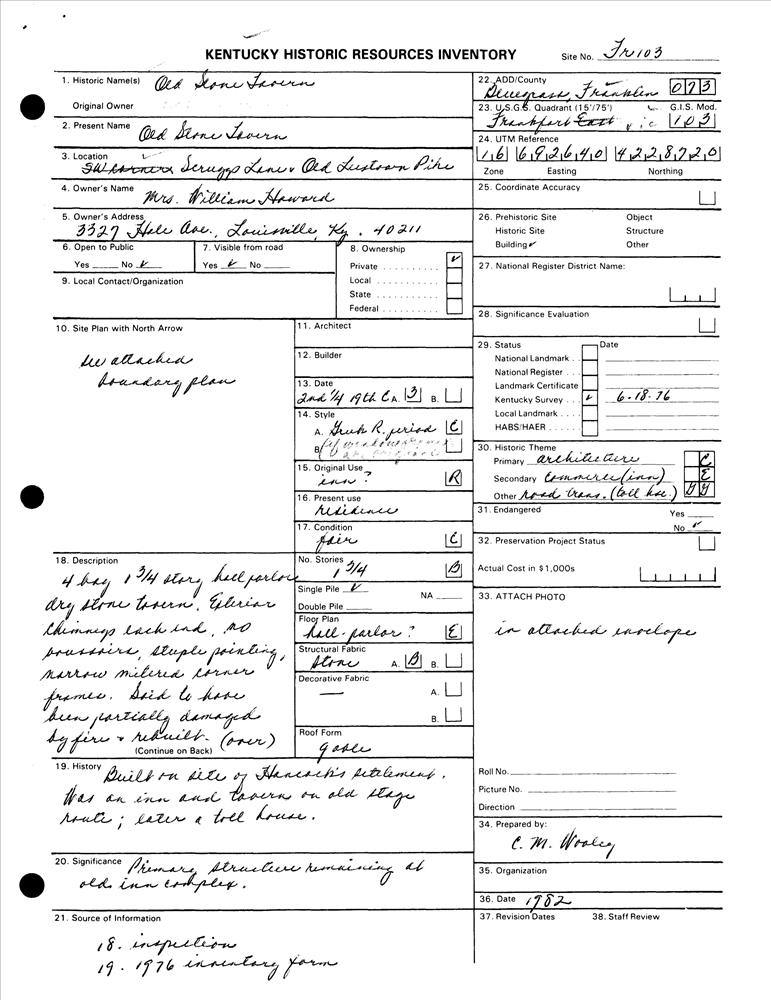 KENTUCKY HISTORIC RESOURCES INVENTORY
Site No. Fr 103
1. Historic Name(s) Old Stone Tavern
Original Owner
2. Present Name Old Stone Tavern
3. Location SW corner Scruggs Lane & Old Leestown Pike
4. Owner's Name Mrs. William Howard
5. Owner's Address
3327 Hale Ave., Louisville, Ky. 40211
6. Open to Public
Yes No ✓
7. Visible from road
Yes ✓ No
8. Ownership
Private ✓
Local
State
Federal
9. Local Contact/Organization
10. Site Plan with North Arrow
see attached
boundary plan
11. Architect
12. Builder
13. Date
2nd 1/4 19th C A. 3 B.
14. Style
A. Greek R. period C
B.
15. Original Use
inn? R
16. Present use
residence
17. Condition
fair C
18. Description
4 bay 1 3/4 story hall parlor
dry stone tavern. Exterior
chimneys each end, no
voussoirs, steeple pointing,
narrow mitered corner
frames. Said to have
been partially damaged
by fire & rebuilt. (over)
(Continue on Back)
No. Stories
1 3/4 B
Single Pile ✓ NA
Double Pile
Floor Plan
hall-parlor? E
Structural Fabric
stone A. B B.
Decorative Fabric
— A.
B.
Roof Form
gable
19. History Built on site of Hancock's settlement.
Was an inn and tavern on old stage
route; later a toll house.
20. Significance Primary structure remaining at
old inn complex.
21. Source of Information
18. inspection
19. 1976 inventory form
22. ADD/County
Bluegrass, Franklin 073
23. U.S.G.S. Quadrant (15'/75') G.I.S. Mod.
Frankfort East 103
24. UTM Reference
16 692640 4228720
Zone Easting Northing
25. Coordinate Accuracy
26. Prehistoric Site Object
Historic Site Structure
Building ✓ Other
27. National Register District Name:
28. Significance Evaluation
29. Status Date
National Landmark
National Register
Landmark Certificate
Kentucky Survey ✓ 6-18-76
Local Landmark
HABS/HAER
30. Historic Theme
Primary architecture C
Secondary Commerce (inn) E
Other road trans. (toll hse.)
31. Endangered Yes
No ✓
32. Preservation Project Status
Actual Cost in $1,000s
33. ATTACH PHOTO
in attached envelope
Roll No.
Picture No.
Direction
34. Prepared by:
C. M. Wooley
35. Organization
36. Date 1982
37. Revision Dates 38. Staff Review